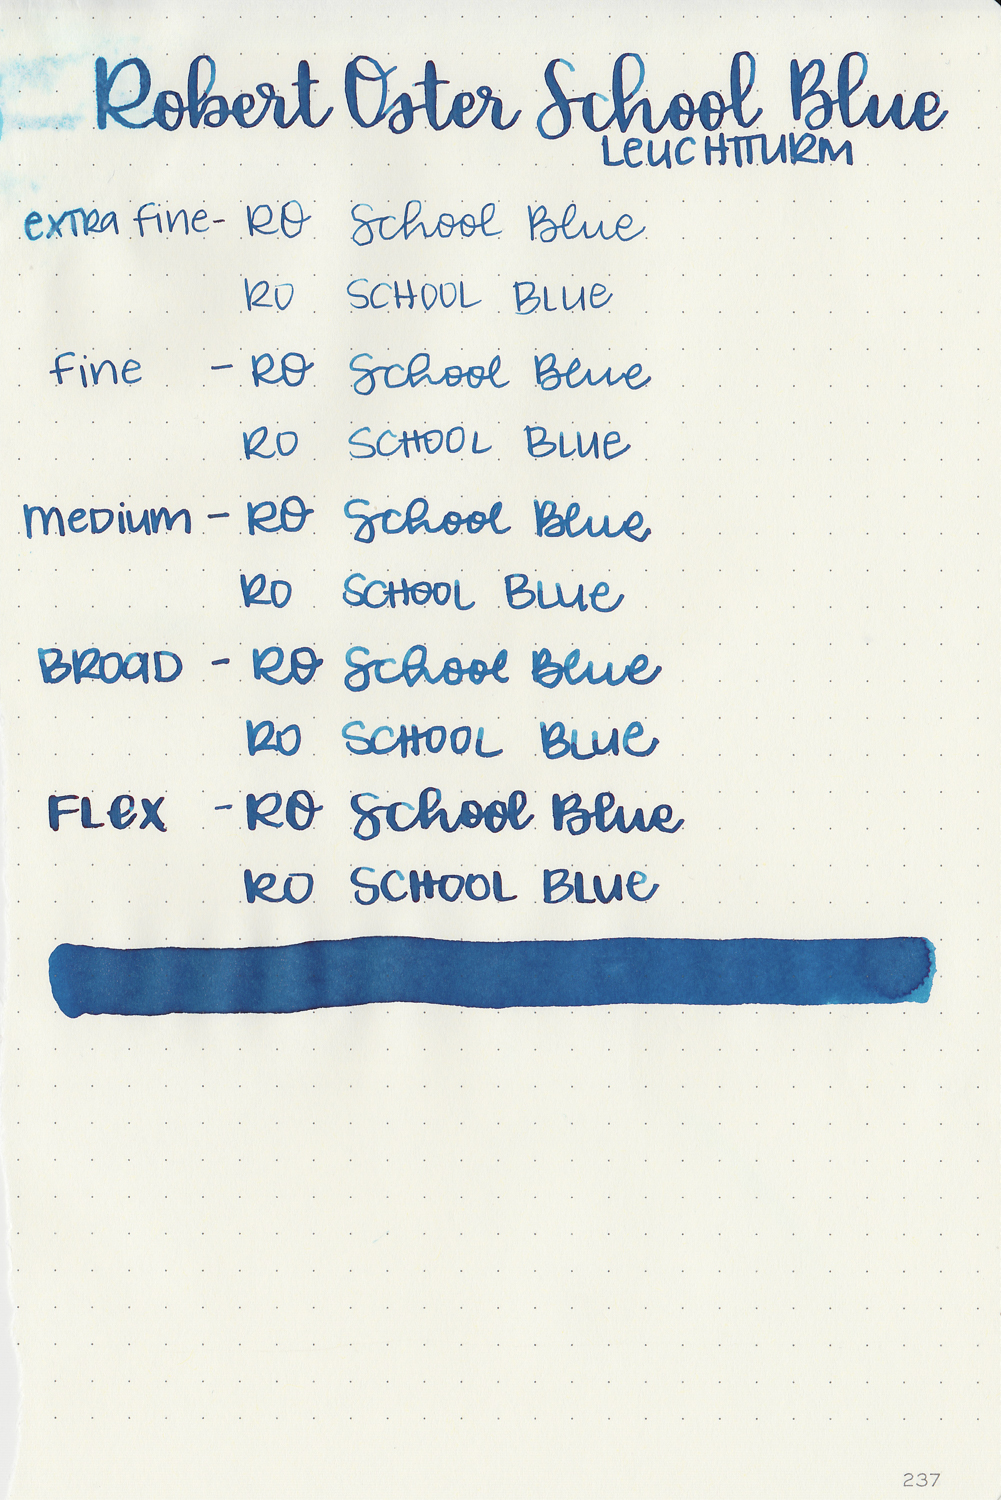 Robert Oster School Blue
LEUCHTTURM
extra fine- RO School Blue
RO SCHOOL BLUE
fine - RO School Blue
RO SCHOOL BLUE
medium - RO School Blue
RO SCHOOL BLUE
BROAD - RO School Blue
RO SCHOOL BLUE
FLEX - RO School Blue
RO SCHOOL BLUE
237